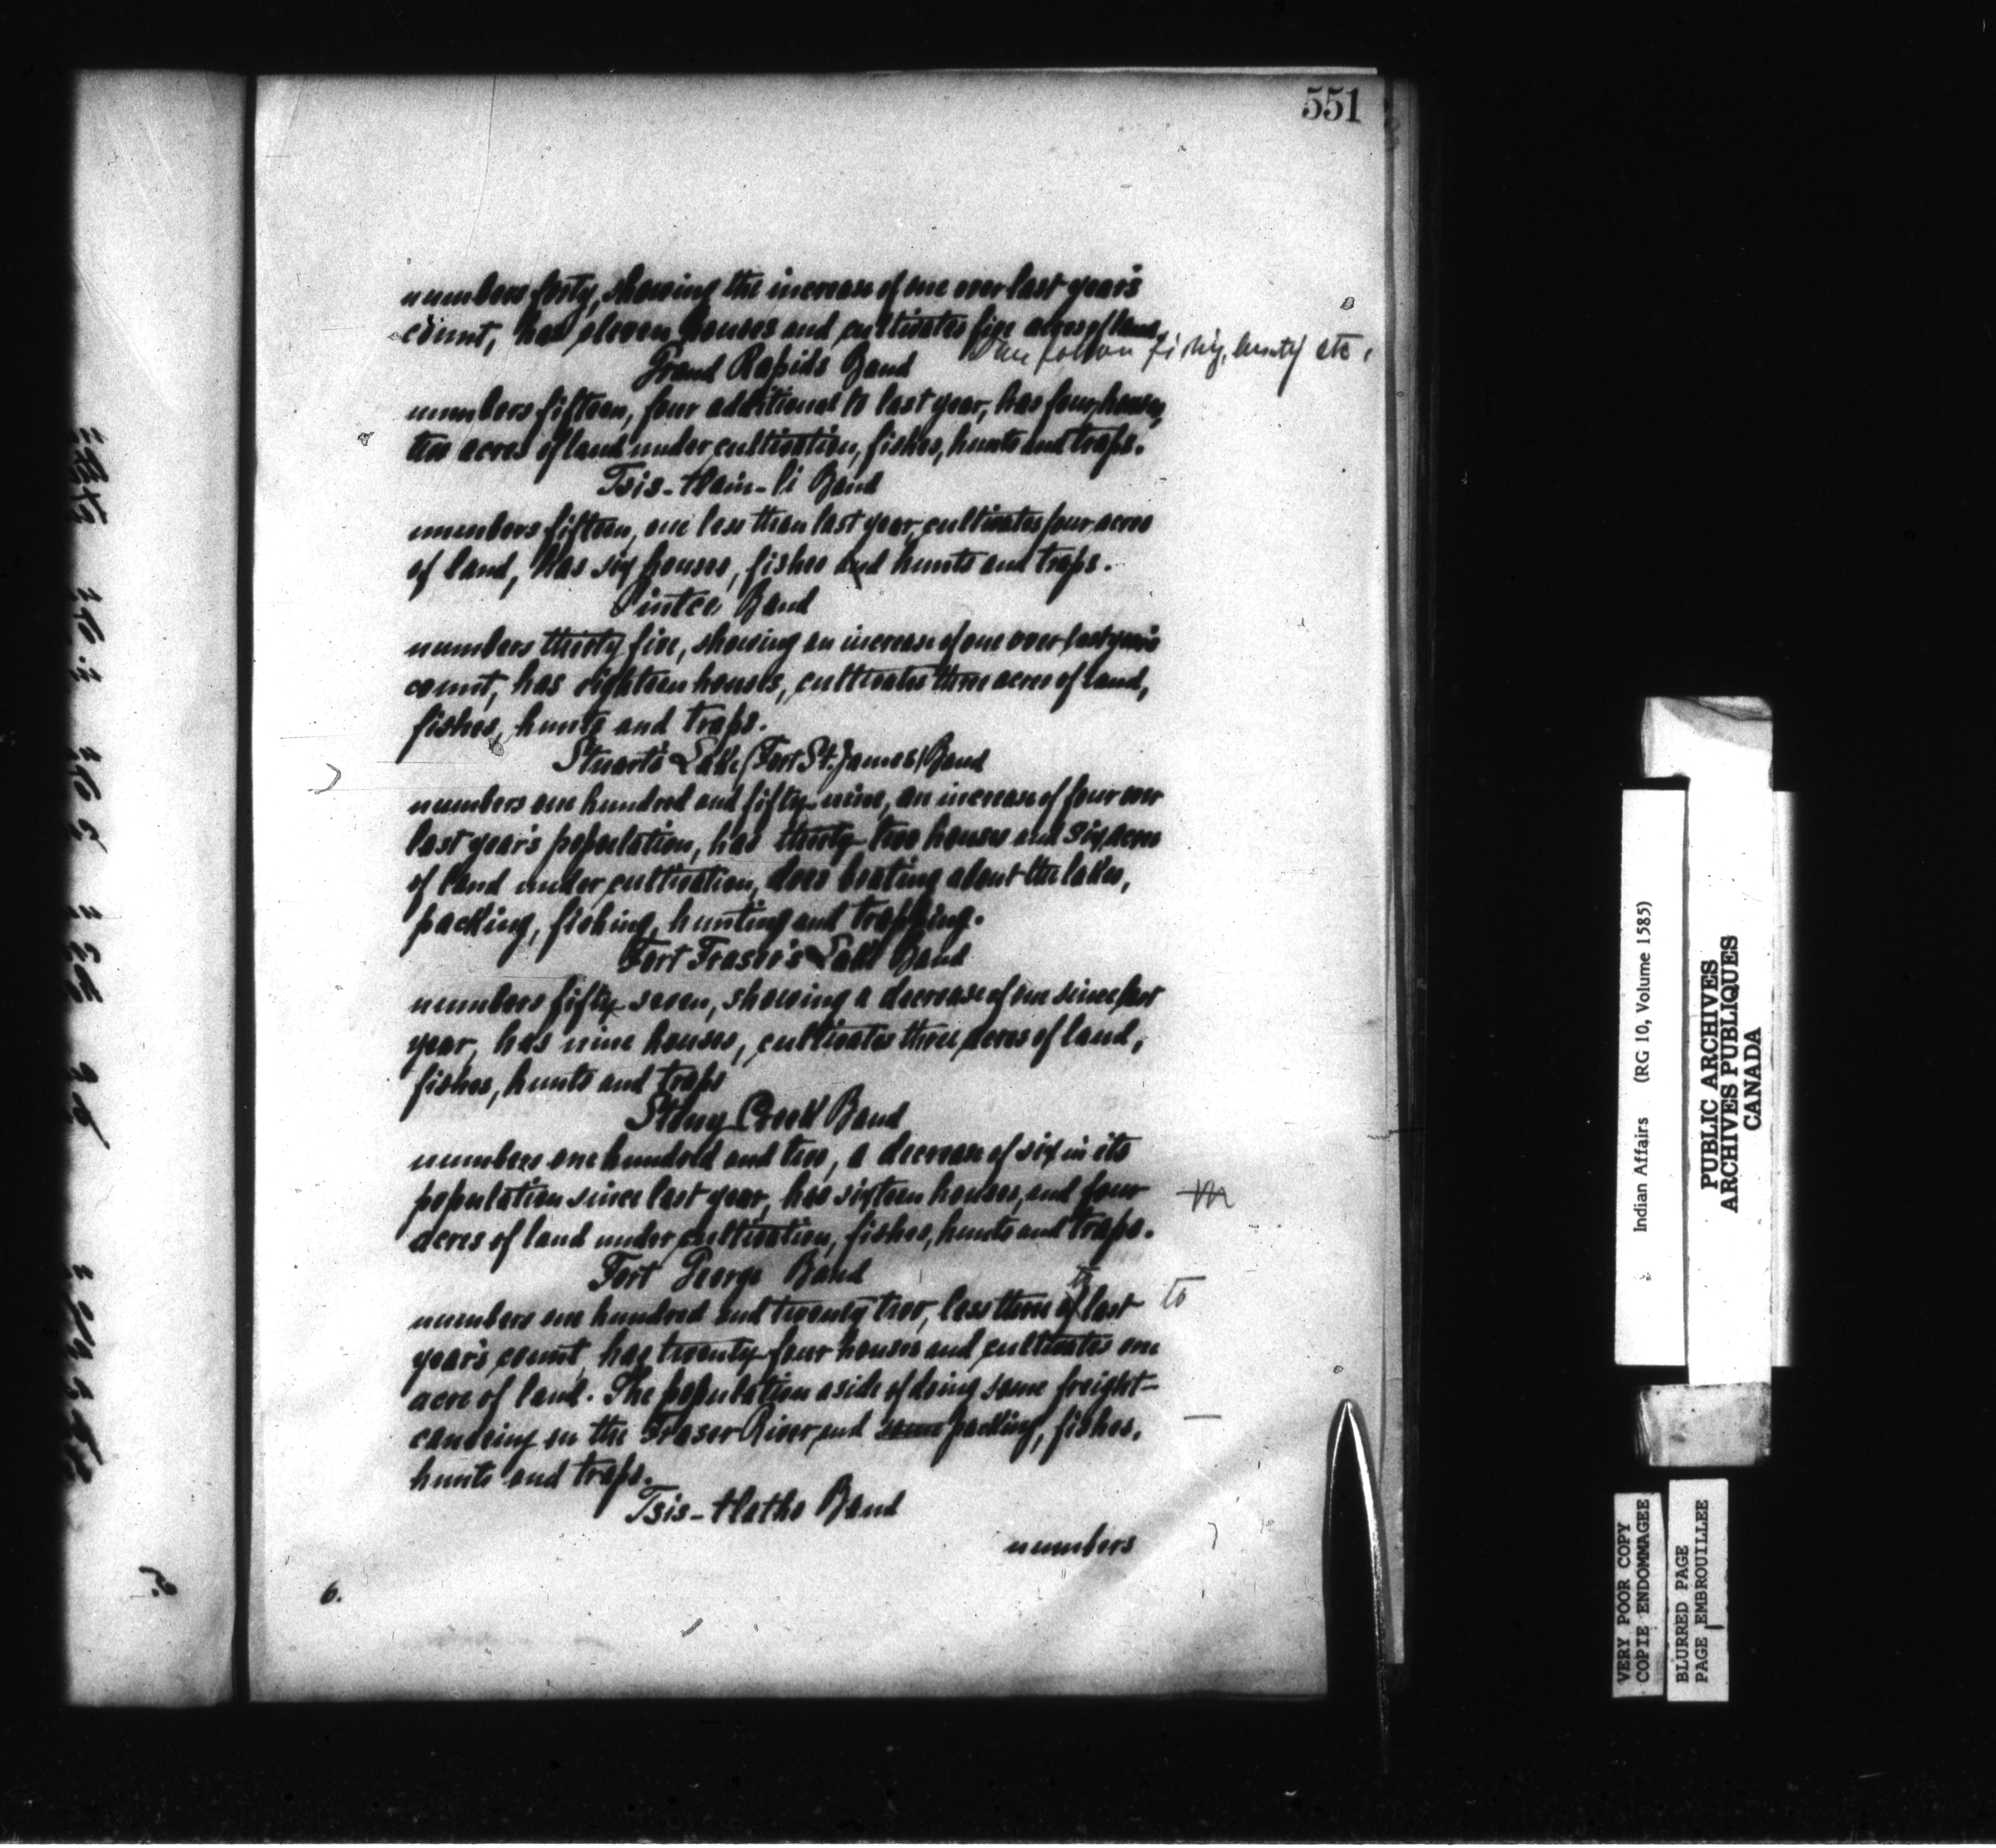 551
numbers forty, showing the increase of one over last year's
count, has eleven houses and cultivates five acres of land,
follow fishing, hunting etc.
Grand Rapids Band
numbers fifteen, four additional to last year, has four houses,
two acres of land under cultivation, fishes, hunts and traps.
Tsis-tlain-li Band
numbers fifteen, one less than last year, cultivates four acres
of land, has six houses, fishes and hunts and traps.
Pintce Band
numbers thirty five, showing an increase of one over last year's
count, has eighteen houses, cultivates three acres of land,
fishes, hunts and traps.
Stuart's Lake (Fort St. James) Band
numbers one hundred and fifty-nine, an increase of four over
last year's population, has thirty-two houses and six acres
of land under cultivation, does boating about the lakes,
packing, fishing, hunting and trapping.
Fort Fraser's Lake Band
numbers fifty-seven, showing a decrease of one since last
year, has nine houses, cultivates three acres of land,
fishes, hunts and traps
Stony Creek Band
numbers one hundred and two, a decrease of six in its
population since last year, has sixteen houses, and four
acres of land under cultivation, fishes, hunts and traps.
Fort George Band
to
numbers one hundred and twenty two, less three of last to
year's count, has twenty-four houses and cultivates one
acre of land. The population aside of doing some freight-
canoeing on the Fraser River and some packing, fishes,
hunts and traps.
Tsis-tlatho Band
numbers
6.
Indian Affairs (RG 10, Volume 1585)
PUBLIC ARCHIVES
ARCHIVES PUBLIQUES
CANADA
VERY POOR COPY
COPIE ENDOMMAGEE
BLURRED PAGE
PAGE EMBROUILLEE